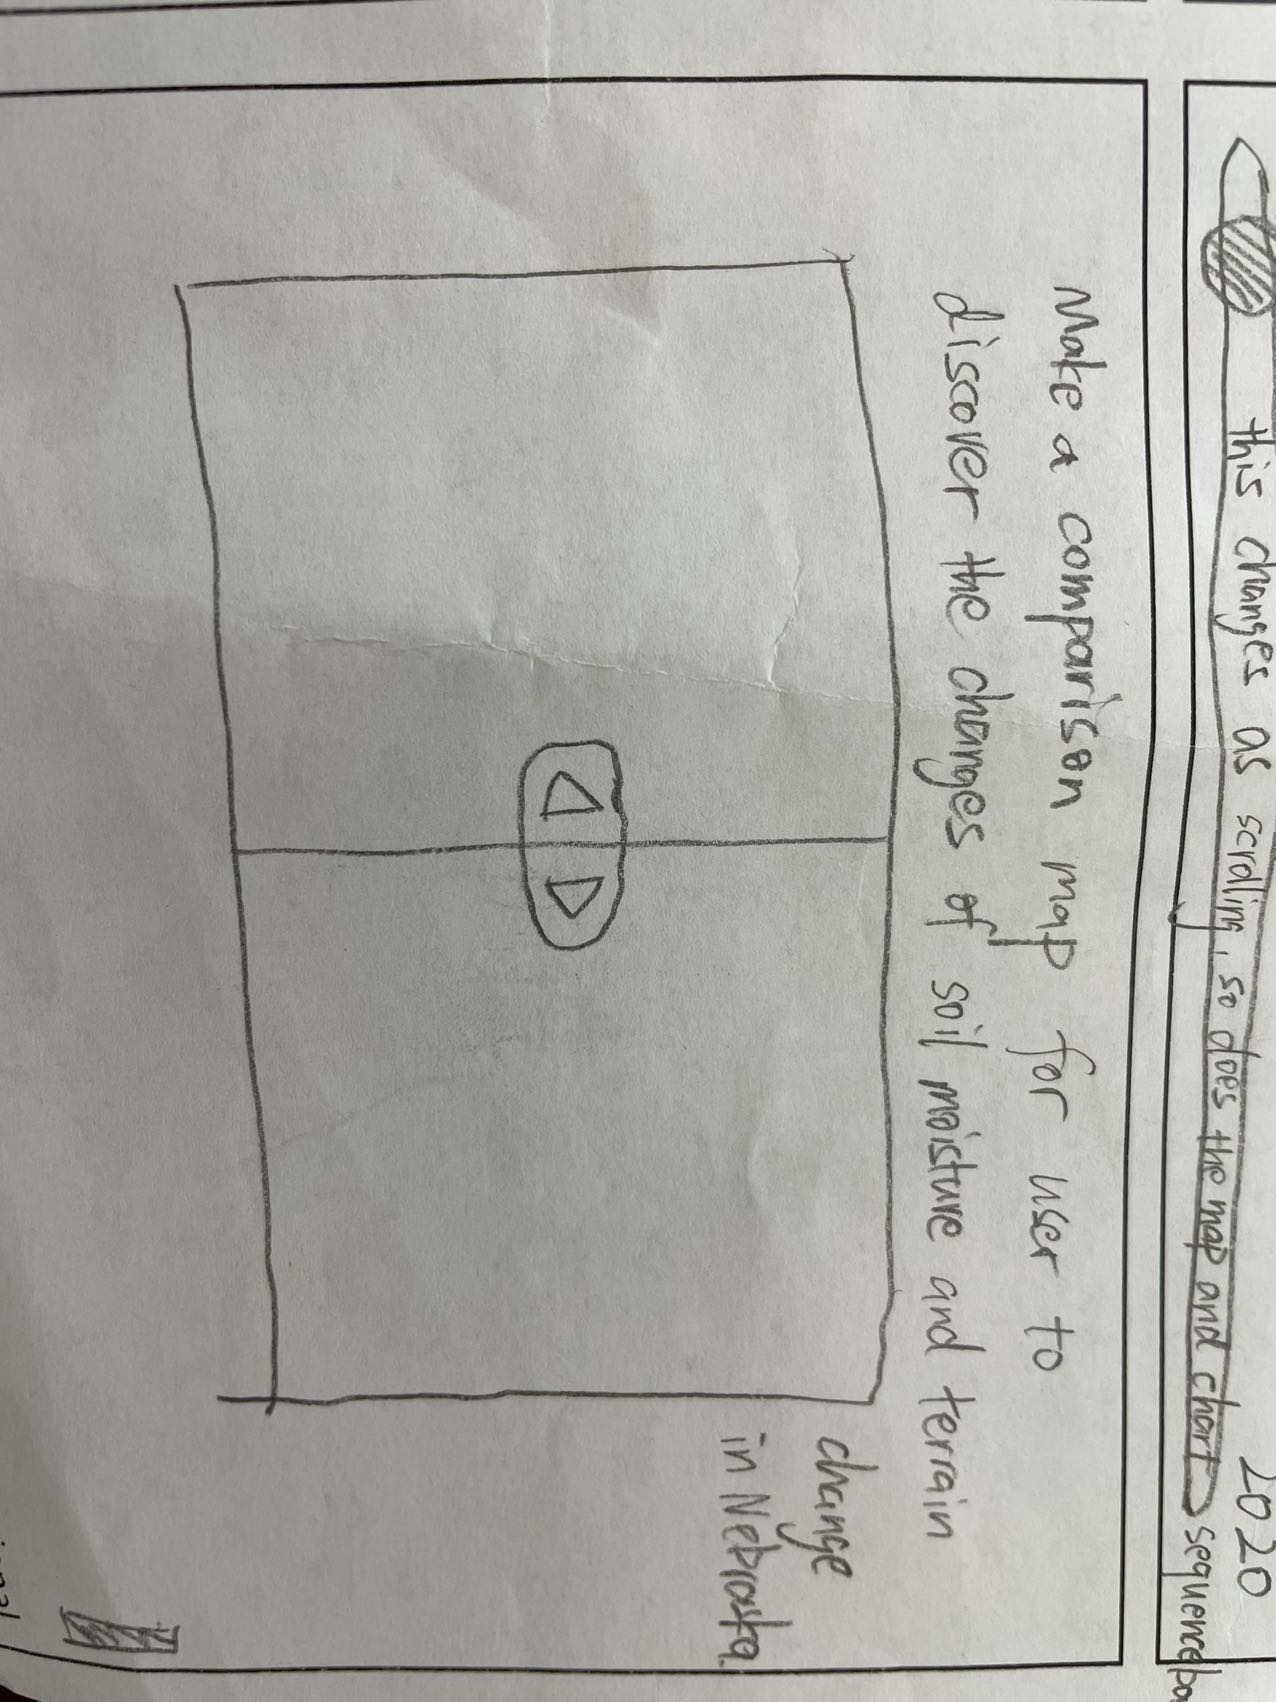 2020
this changes as scrolling, so does the map and chart
sequence
Make a comparison map for user to
discover the changes of soil moisture and terrain
change
in Nebraska.